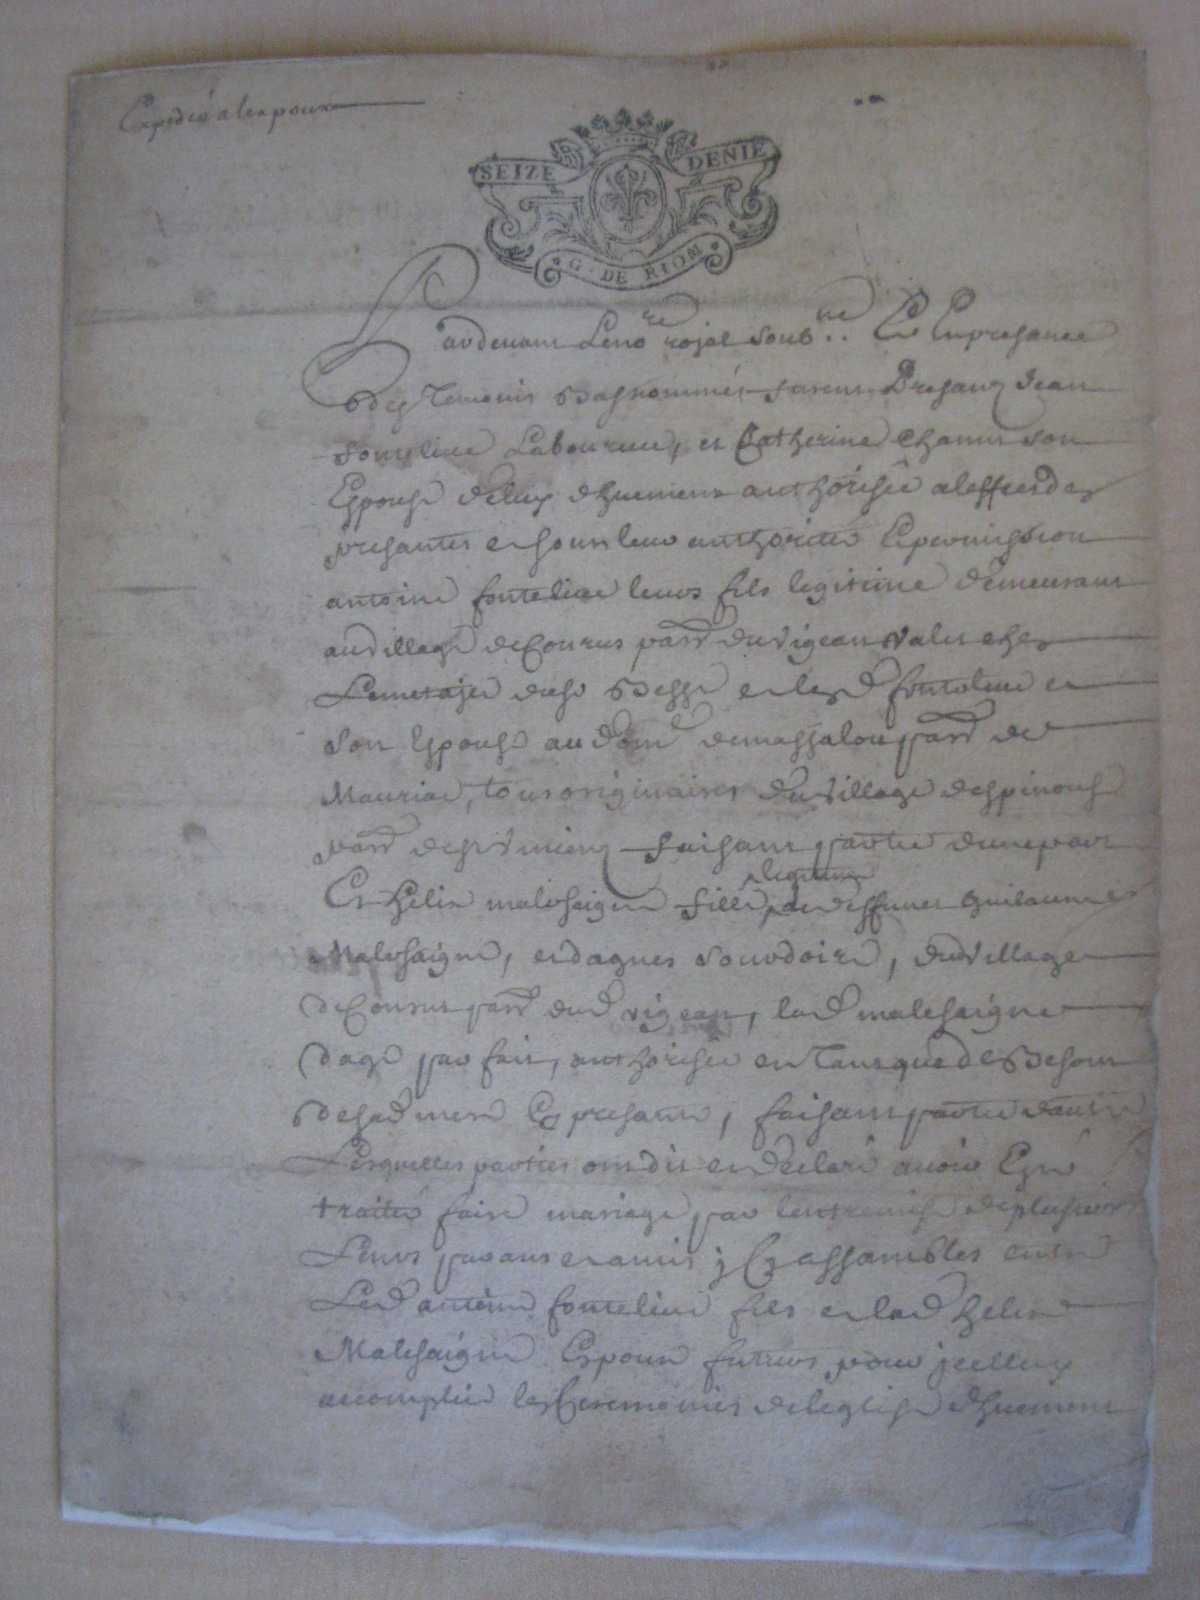 Expedié a lexpoux
SEIZE DENIE
G · DE RIOM
Pardevant Le no.re rojal soub.ne Et En presance
des Temoins Bas nommés furent Presant Jean
fontelive Laboureur, et Catherine Chanut son
Espouse de luy dhuement authorisée a leffect des
presantes et sous leur authorité Et permission
antoine fontelive leurs fils legitime demeurant
au village de Cousus parr. du vigean valet chez
Le metajer et led. fontelive et
son Espouse au dom. de massalou parr. de
Mauriac, tous originaires du village despinouse
parr. de faisant partie dune part
Et Helix malesaigne fille legitime de deffunct Guilaume
Malesaigne, et dagnes Sourdoire, du village
de Cousus parr. dud. vigean, lad. malesaigne
dage parfait, authorisée en Tant que de Besoin
de sad. mere Cy presante, faisant partie dautre
Lesquelles parties ont dit et declaré avoir Esté
traité faire mariage par lentremise de plusieurs
Leurs parans et amis ; Cy assambles entre
Led. antoine fontelive fils et lad. helix
Malesaigne Espoux futurs pour jcelluy
accomplir les Ceremonies de leglise dhuement